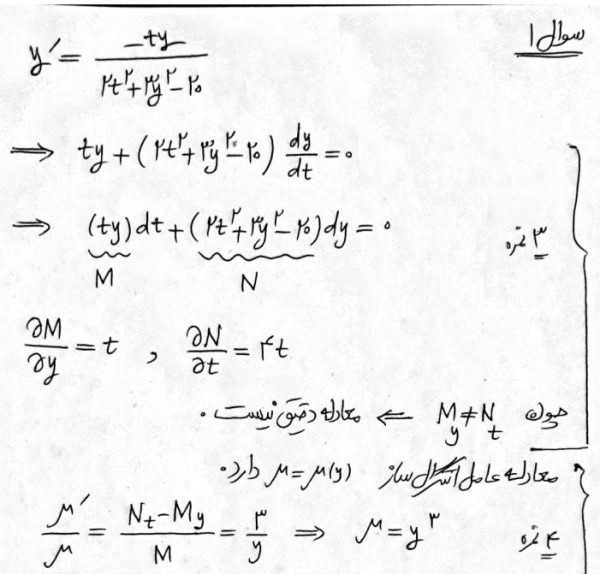 سوال ۱
y′ = −ty / (۲t^۲+۳y^۲−۲۰)
⟹ ty + (۲t^۲+۳y^۲−۲۰) dy/dt = ۰
⟹ (ty)dt + (۲t^۲+۳y^۲−۲۰)dy = ۰
M N
۳ نمره
∂M/∂y = t , ∂N/∂t = ۴t
چون M_y ≠ N_t ⟸ معادله دقیق نیست.
معادله عامل انتگرال ساز μ=μ(y) دارد.
μ′/μ = (N_t−M_y)/M = ۳/y ⟹ μ = y^۳
۴ نمره